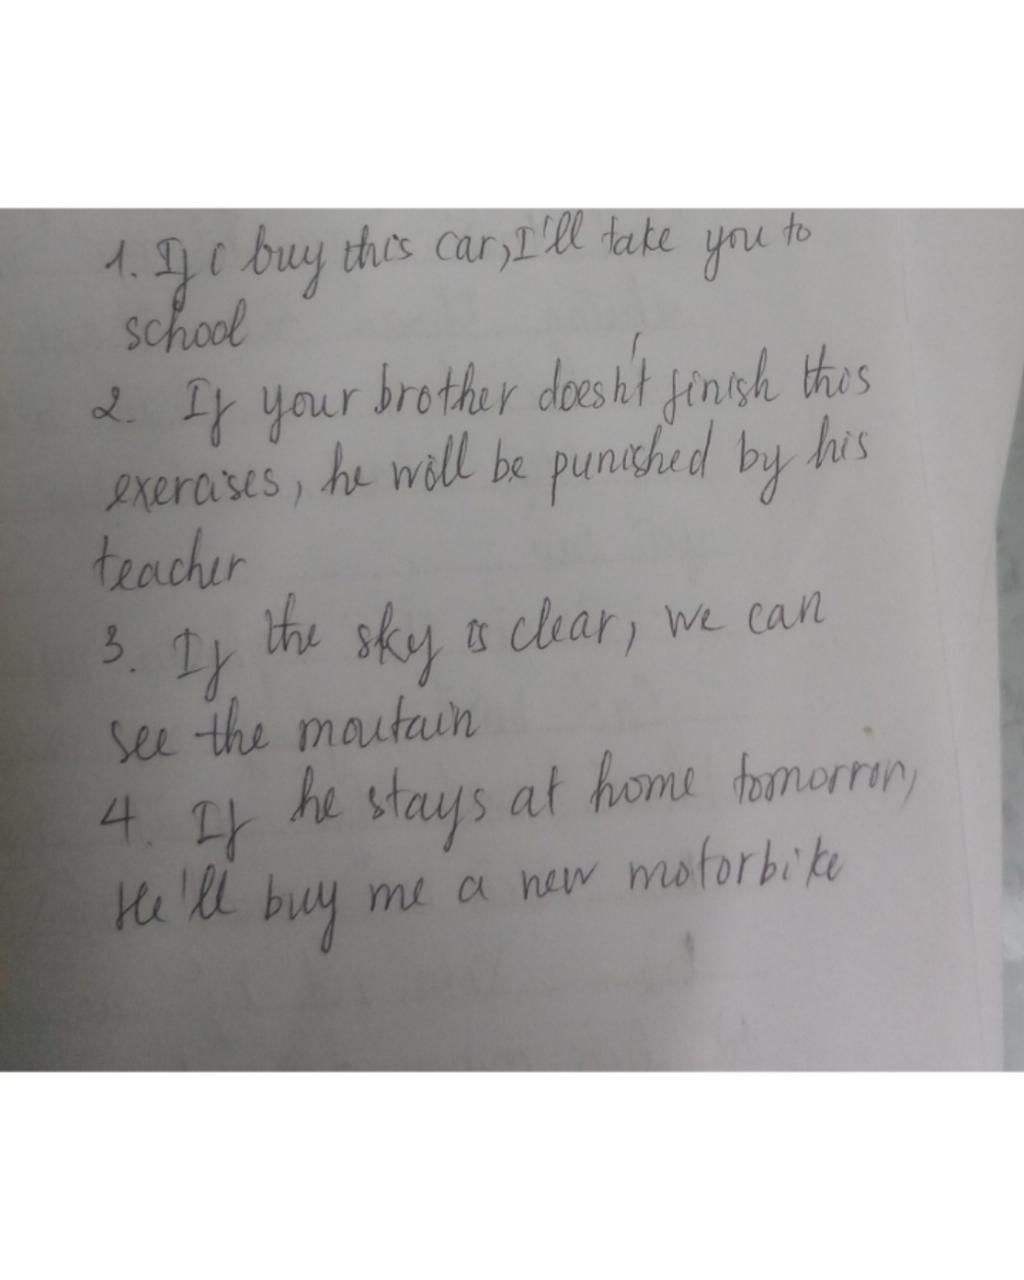 1. If i buy this car, I'll take you to
school
2. If your brother doesn't finish this
exercises, he will be punished by his
teacher
3. If the sky is clear, we can
see the moutain
4. If he stays at home tomorrow,
He'll buy me a new motorbike